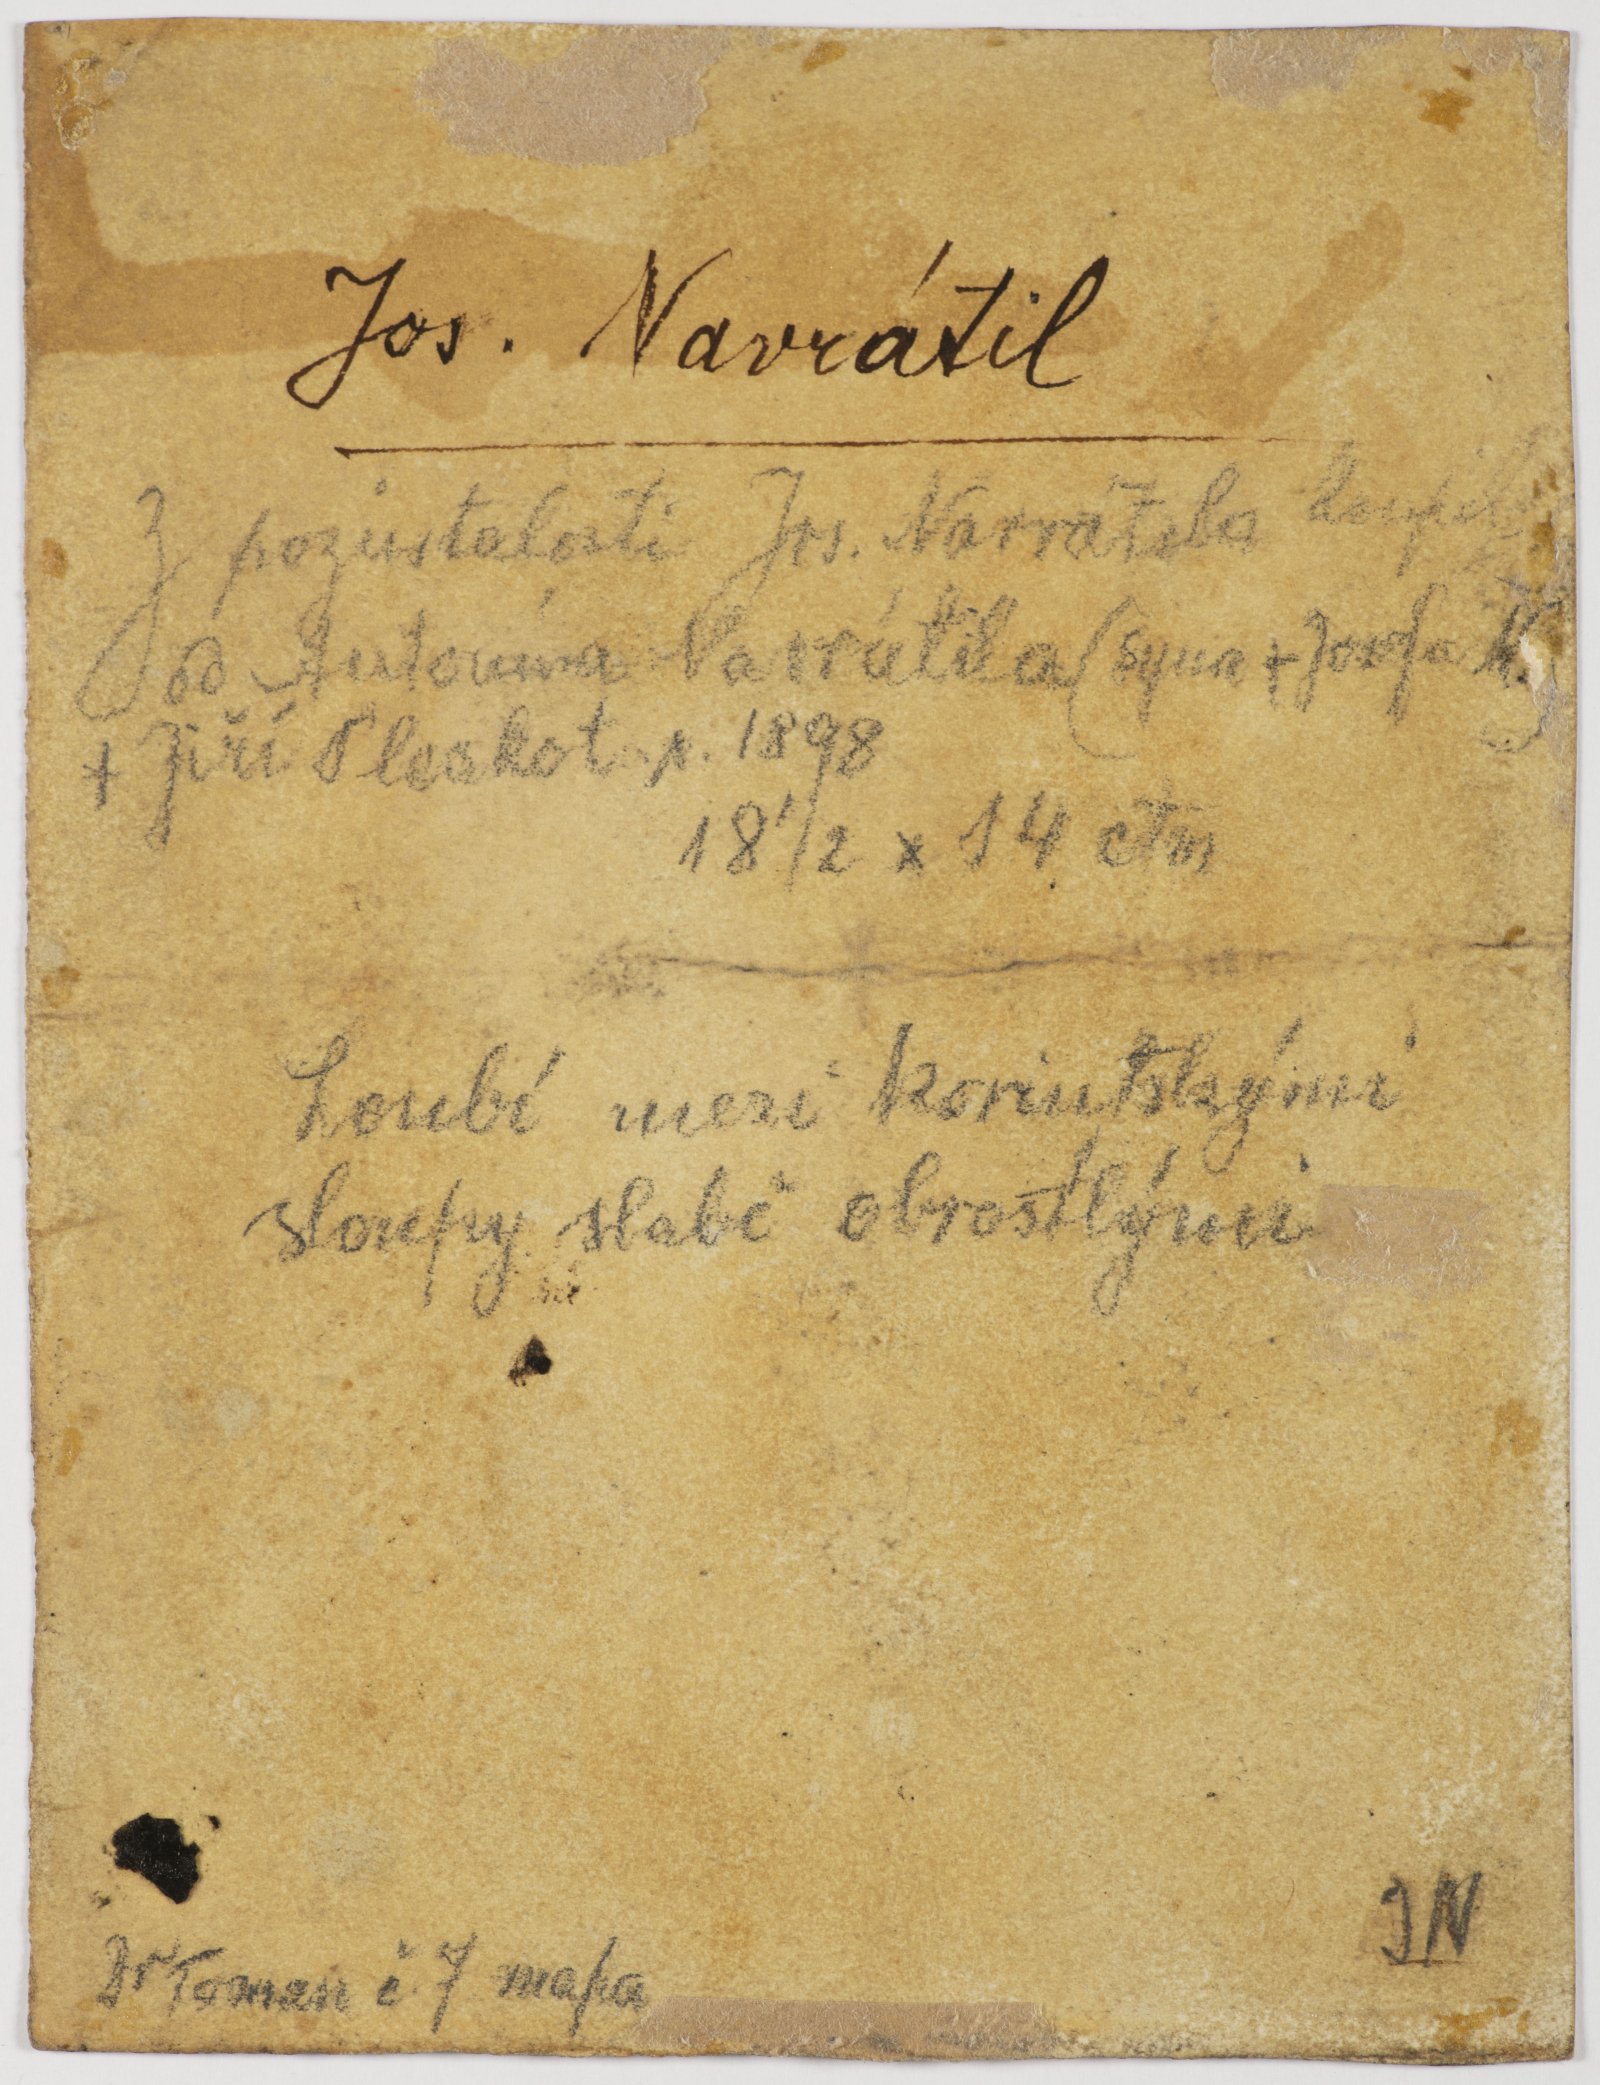 Jos. Navrátil
Z pozůstalosti Jos. Navrátila koupil
od Antonína Navrátila (syna + Josefa N.)
+ Jiří Pleskot r. 1898
18 1/2 x 14 ctm
Loubí mezi korintskými
sloupy slabě obrostlými
Dr Toman č. 7 mapa
JN